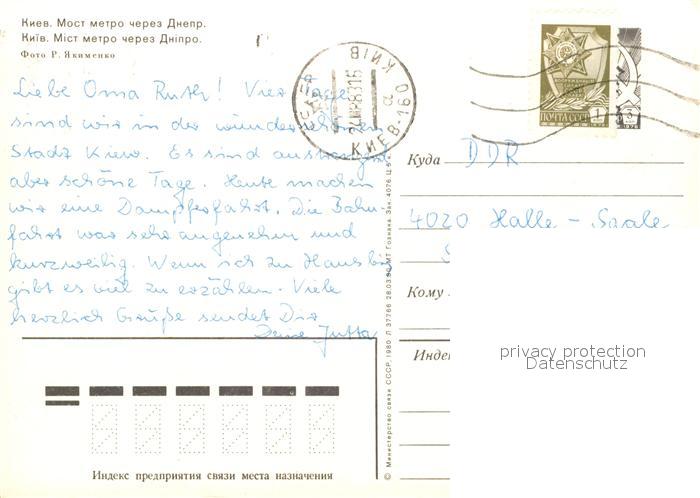 Киев. Мост метро через Днепр.
Київ. Міст метро через Дніпро.
Фото Р. Якименко
Liebe Oma Ruth! Vier Tage
sind wir in der wunderschönen
Stadt Kiew. Es sind anstrengende
aber schöne Tage. Heute machen
wir eine Dampferfahrt. Die Bahn-
fahrt war sehr angenehm und
kurzweilig. Wenn ich zu Haus bin
gibt es viel zu erzählen. Viele
herzlich Grüße sendet Dir
Deine Jutta
Индекс предприятия связи места назначения
© Министерство связи СССР, 1980 Л 37766 28.03.80 МТ Гознака Зак. 4076 Ц. 5
КИЇВ
КИЕВ-160
ПОЧТА СССР 1
Куда DDR
4020 Halle - Saale
Кому
Инде
privacy protection
Datenschutz